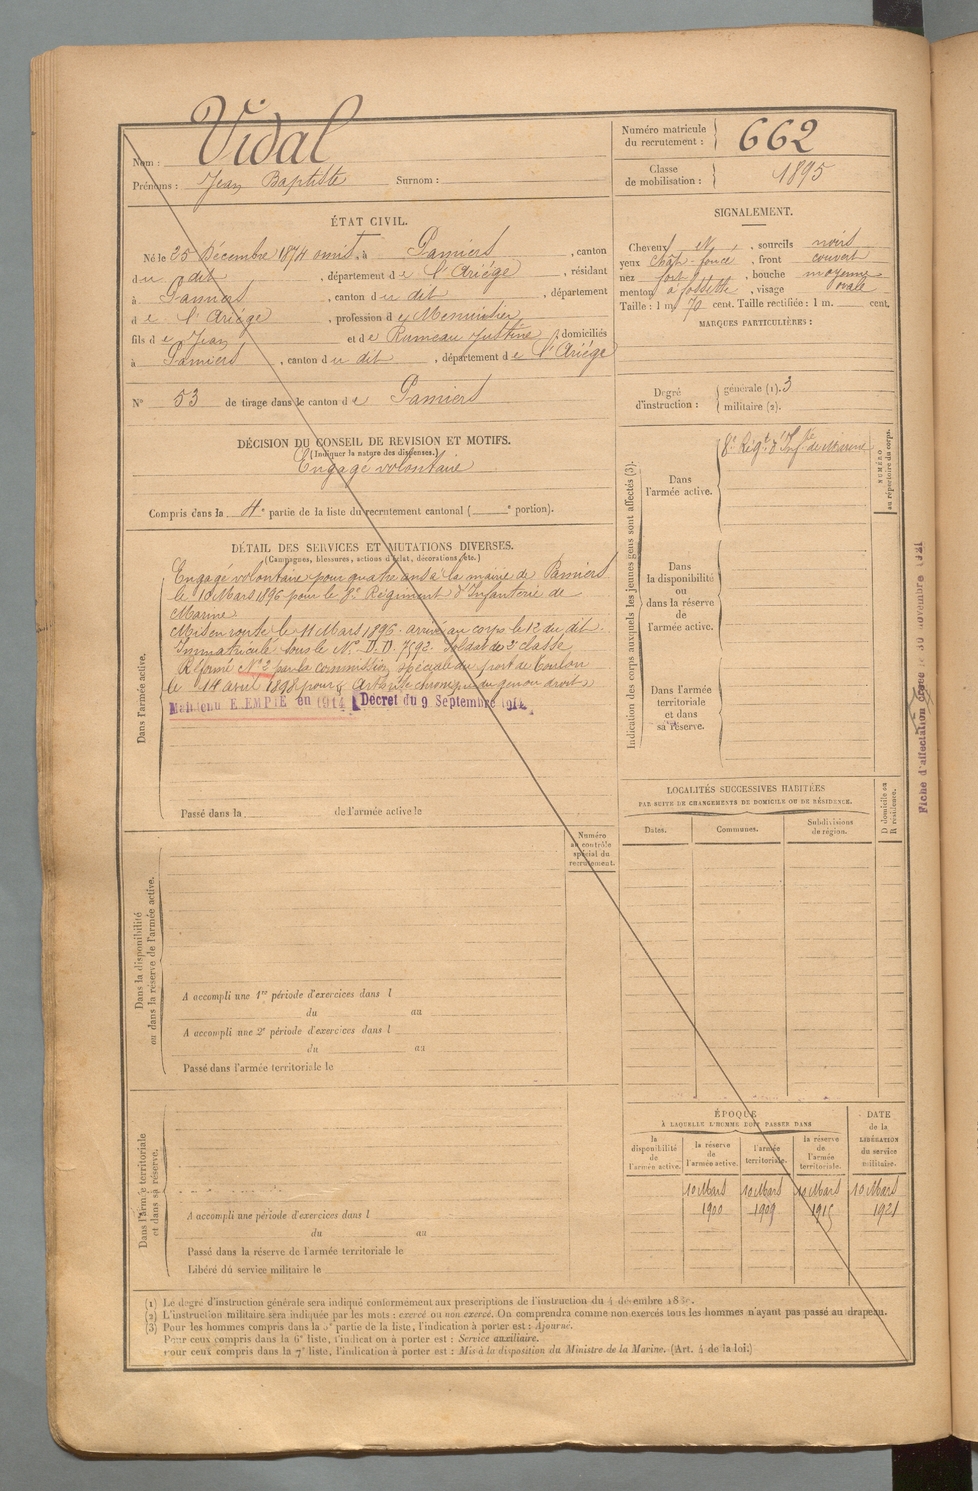 Nom : Vidal
Prénoms : Jean Baptiste Surnom :
Numéro matricule du recrutement : 662
Classe de mobilisation : 1895
ÉTAT CIVIL.
Né le 25 Décembre 1874 omis, à Pamiers, canton
du dit, département de l'Ariége, résidant
à Pamiers, canton du dit, département
de l'Ariége, profession de Menuisier
fils de Jean et de Rumeau Justine, domiciliés
à Pamiers, canton du dit, département de l'Ariége
N° 53 de tirage dans le canton de Pamiers
SIGNALEMENT.
Cheveux N, sourcils noirs
yeux chât-foncé, front couvert
nez fort, bouche moyenne
menton à fossette, visage ovale
Taille : 1 m. 70 cent. Taille rectifiée : 1 m. cent.
MARQUES PARTICULIÈRES :
Degré d'instruction : générale (1). 3
militaire (2).
DÉCISION DU CONSEIL DE REVISION ET MOTIFS.
(Indiquer la nature des dispenses.)
Engagé volontaire
Compris dans la 4e partie de la liste du recrutement cantonal ( e portion).
DÉTAIL DES SERVICES ET MUTATIONS DIVERSES.
(Campagnes, blessures, actions d'éclat, décorations, etc.)
Dans l'armée active.
Engagé volontaire pour quatre ans à la mairie de Pamiers
le 10 Mars 1896 pour le 8e Régiment d'Infanterie de
Marine
Mis en route le 11 Mars 1896. arrivé au corps le 12 du dit.
Immatriculé sous le N° D.D. 7592. Soldat de 2e classe
Réformé N° 2 par la commission spéciale du port de Toulon
le 14 avril 1898 pour Arthrite chronique du genou droit
Maintenu EXEMPTÉ en 1914 Décret du 9 Septembre 1914
Passé dans la de l'armée active le
Indication des corps auxquels les jeunes gens sont affectés (3).
Dans l'armée active.
8e Régt d'Infie de Marine
NUMÉRO au répertoire du corps.
Dans la disponibilité ou dans la réserve de l'armée active.
Dans l'armée territoriale et dans sa réserve.
Fiche d'affectation créée le 30 novembre 1921
LOCALITÉS SUCCESSIVES HABITÉES
PAR SUITE DE CHANGEMENTS DE DOMICILE OU DE RÉSIDENCE.
Dates. Communes. Subdivisions de région.
D domicile ou R résidence.
Numéro au contrôle spécial du recrutement.
Dans la disponibilité ou dans la réserve de l'armée active.
A accompli une 1re période d'exercices dans l
du au
A accompli une 2e période d'exercices dans l
du au
Passé dans l'armée territoriale le
Dans l'armée territoriale et dans sa réserve.
A accompli une période d'exercices dans l
du au
Passé dans la réserve de l'armée territoriale le
Libéré du service militaire le
ÉPOQUE
À LAQUELLE L'HOMME DOIT PASSER DANS
la disponibilité de l'armée active.
la réserve de l'armée active.
l'armée territoriale.
la réserve de l'armée territoriale.
DATE de la LIBÉRATION du service militaire.
10 Mars 10 Mars 10 Mars 10 Mars
1900 1909 1915 1921
(1) Le degré d'instruction générale sera indiqué conformément aux prescriptions de l'instruction du 4 décembre
(2) L'instruction militaire sera indiquée par les mots : exercé ou non exercé. On comprendra comme non exercés tous les hommes n'ayant pas passé au drapeau.
(3) Pour les hommes compris dans la 5e partie de la liste, l'indication à porter est : Ajourné.
Pour ceux compris dans la 6e liste, l'indication à porter est : Service auxiliaire.
Pour ceux compris dans la 7e liste, l'indication à porter est : Mis à la disposition du Ministre de la Marine. (Art. 4 de la loi.)